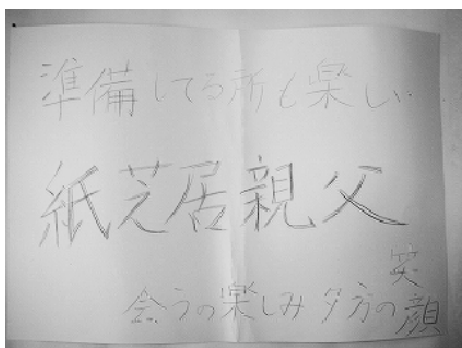 準備してる所も楽しい
紙芝居親父
会うの楽しみ夕方の笑顔